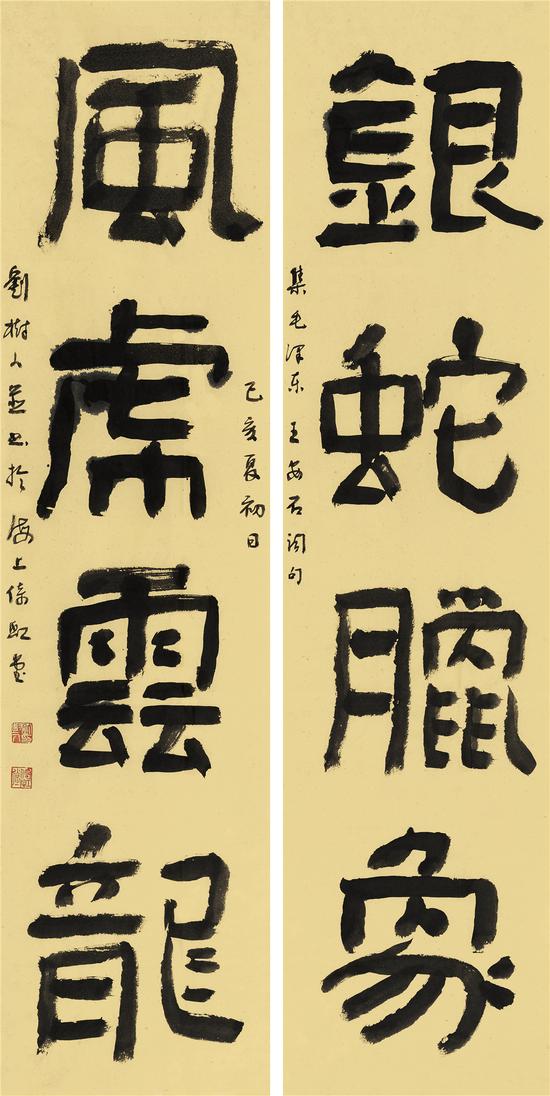 銀蛇臘象
集毛泽东王安石词句
風虎雲龍
己亥夏初日
劉樹人並书於海上倚虹堂